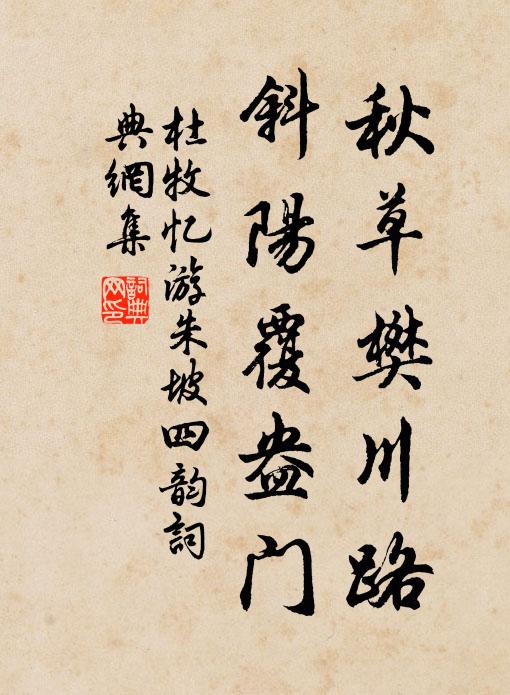 秋草樊川路
斜陽覆盎门
杜牧忆游朱坡四韵詞
典網集
詞典网印